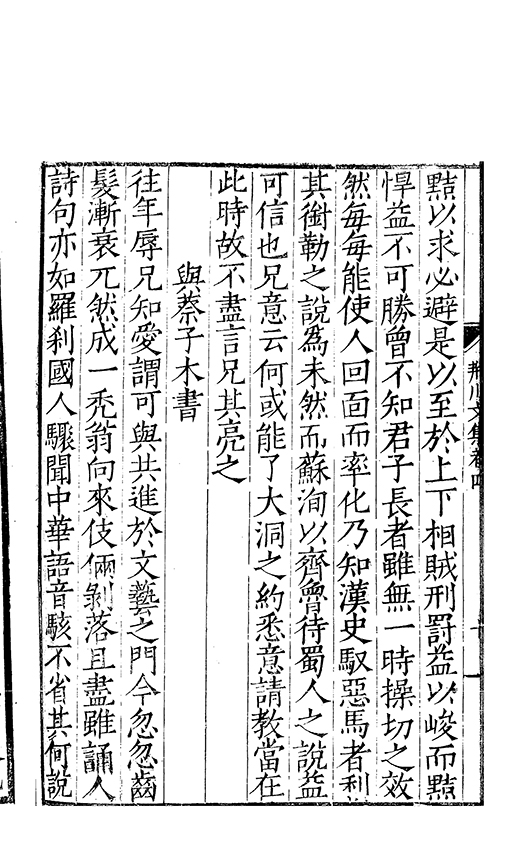 黠以求必避是以至於上下相賊刑罰益以峻而黠
悍益不可勝曾不知君子長者雖無一時操切之效
然每每能使人回面而率化乃知漢史馭惡馬者利
其銜勒之說為未然而蘇洵以齊魯待蜀人之說益
可信也兄意云何或能了大洞之約悉意請教當在
此時故不盡言兄其亮之
與蔡子木書
往年辱兄知愛謂可與共進於文藝之門今忽忽齒
髮漸衰兀然成一禿翁向來伎倆剝落且盡雖誦人
詩句亦如羅刹國人驟聞中華語音駭不省其何說
荊川文集卷四